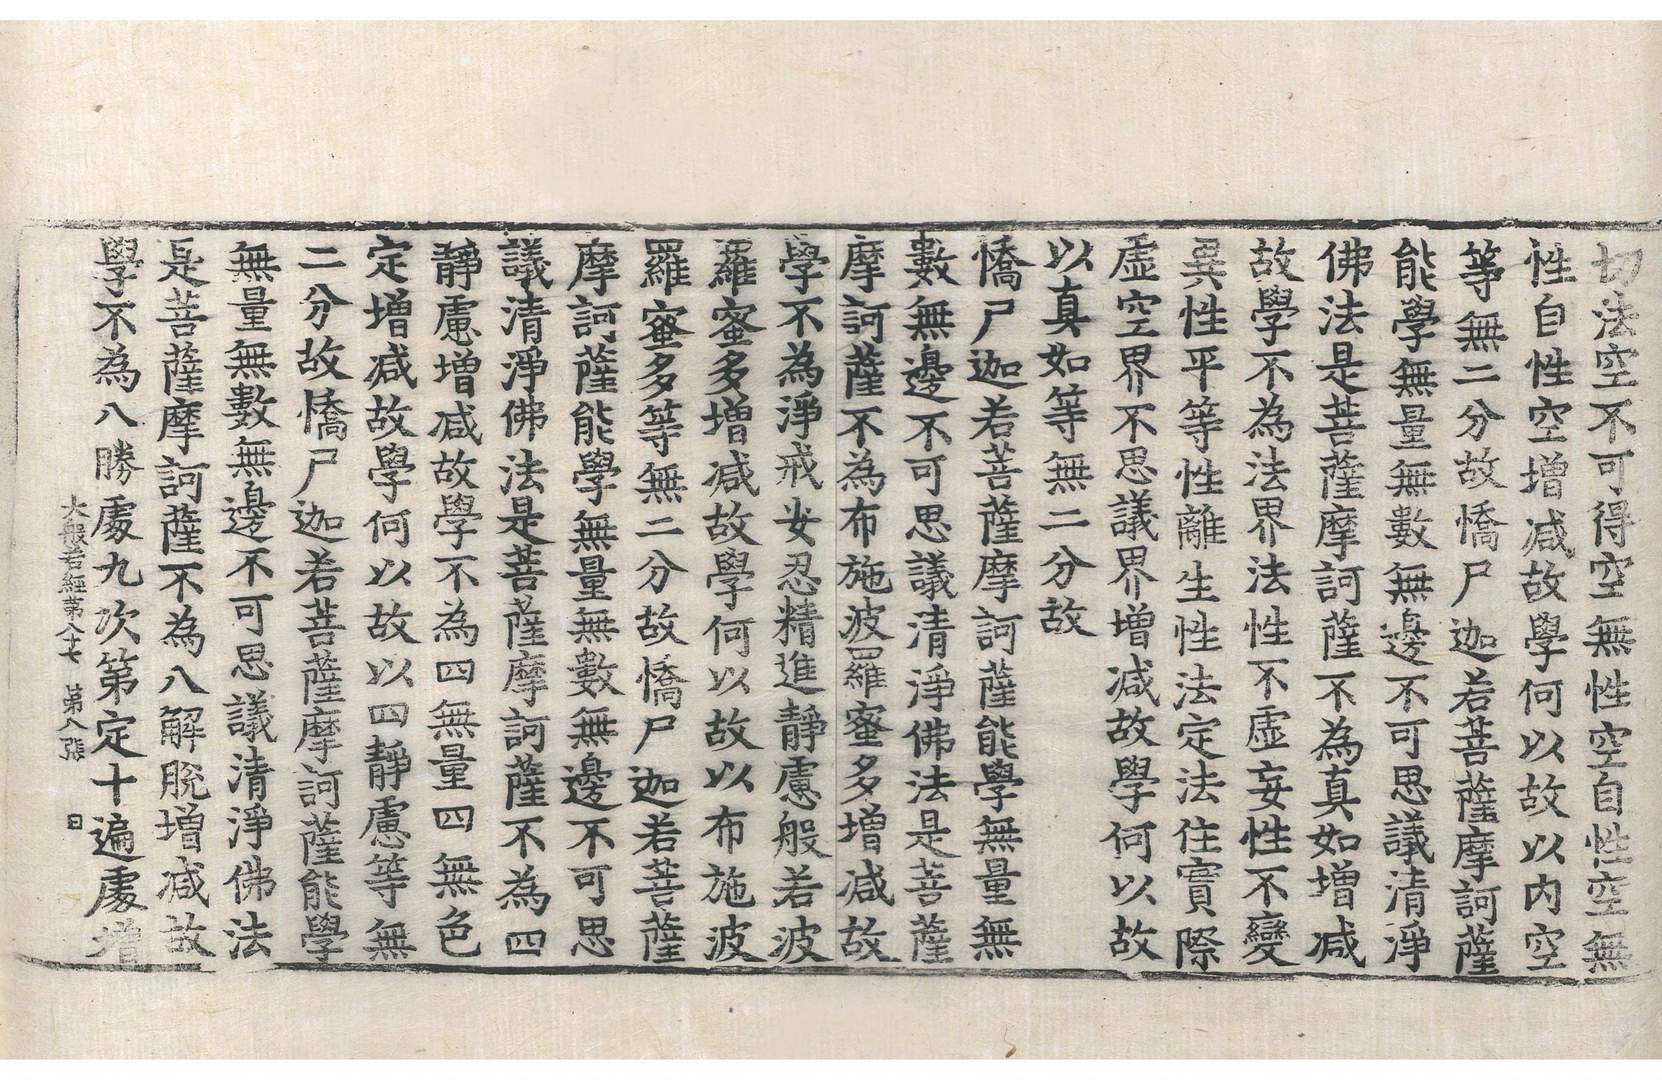 切法空不可得空無性空自性空無
性自性空增减故學何以故以内空
等無二分故憍尸迦若菩薩摩訶薩
能學無量無數無邊不可思議清淨
佛法是菩薩摩訶薩不為真如增减
故學不為法界法性不虛妄性不變
異性平等性離生性法定法住實際
虛空界不思議界增减故學何以故
以真如等無二分故
憍尸迦若菩薩摩訶薩能學無量無
數無邊不可思議清淨佛法是菩薩
摩訶薩不為布施波羅蜜多增减故
學不為淨戒安忍精進靜慮般若波
羅蜜多增减故學何以故以布施波
羅蜜多等無二分故憍尸迦若菩薩
摩訶薩能學無量無數無邊不可思
議清淨佛法是菩薩摩訶薩不為四
靜慮增减故學不為四無量四無色
定增减故學何以故以四靜慮等無
二分故憍尸迦若菩薩摩訶薩能學
無量無數無邊不可思議清淨佛法
是菩薩摩訶薩不為八解脫增减故
學不為八勝處九次第定十遍處增
大般若經第八十七 第八張 日